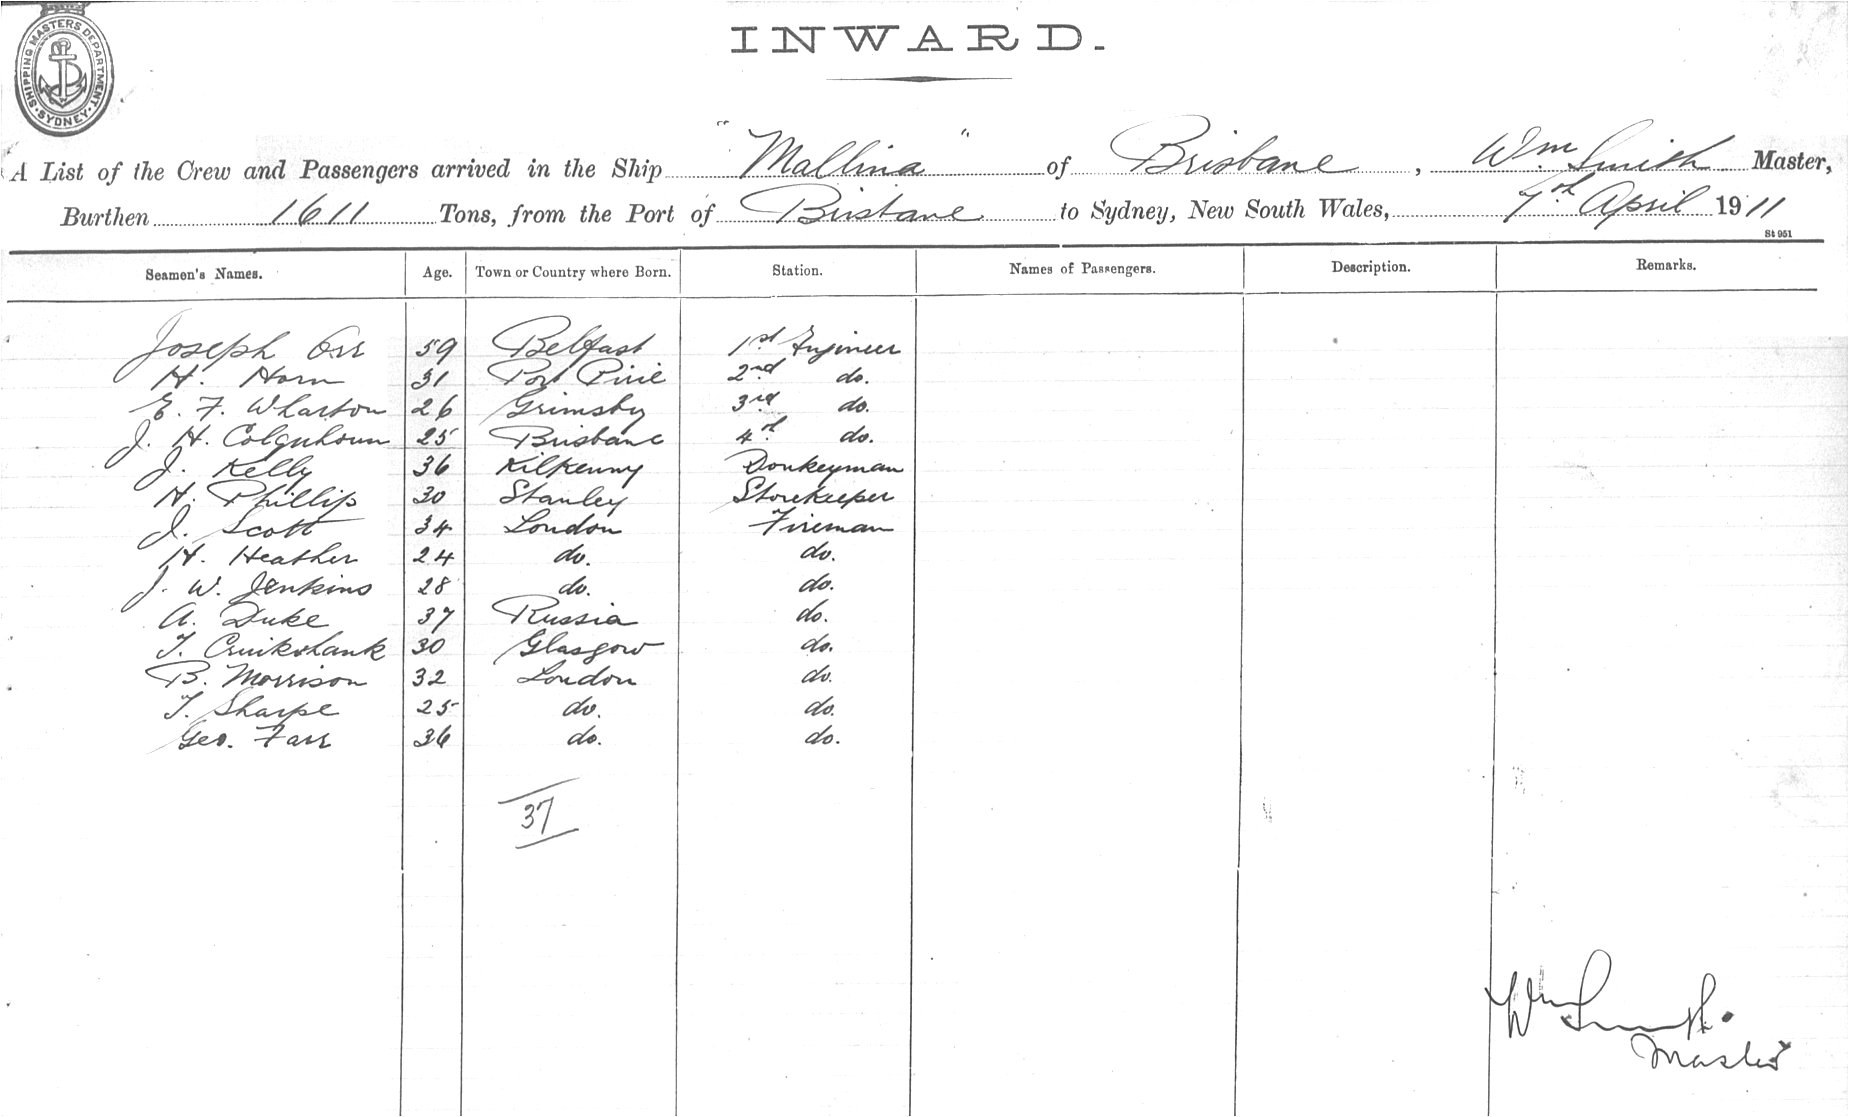 SHIPPING MASTERS DEPARTMENT. SYDNEY
INWARD.
A List of the Crew and Passengers arrived in the Ship "Mallina" of Brisbane, Wm. Smith Master,
Burthen 1611 Tons, from the Port of Brisbane to Sydney, New South Wales, 7th April 1911
St 951
Seamen's Names. Age. Town or Country where Born. Station. Names of Passengers. Description. Remarks.
Joseph Orr 59 Belfast 1st Engineer
H. Horn 31 Port Pirie 2nd do.
E. F. Wharton 26 Grimsby 3rd do.
J. H. Colquhoun 25 Brisbane 4th do.
J. Kelly 36 Kilkenny Donkeyman
H. Phillips 30 Stanley Storekeeper
J. Scott 34 London Fireman
H. Heather 24 do. do.
J. W. Jenkins 28 do. do.
A. Duke 37 Russia do.
T. Cruikshank 30 Glasgow do.
B. Morrison 32 London do.
T. Sharpe 25 do. do.
Geo. Farr 36 do. do.
37
Wm Smith.
Master